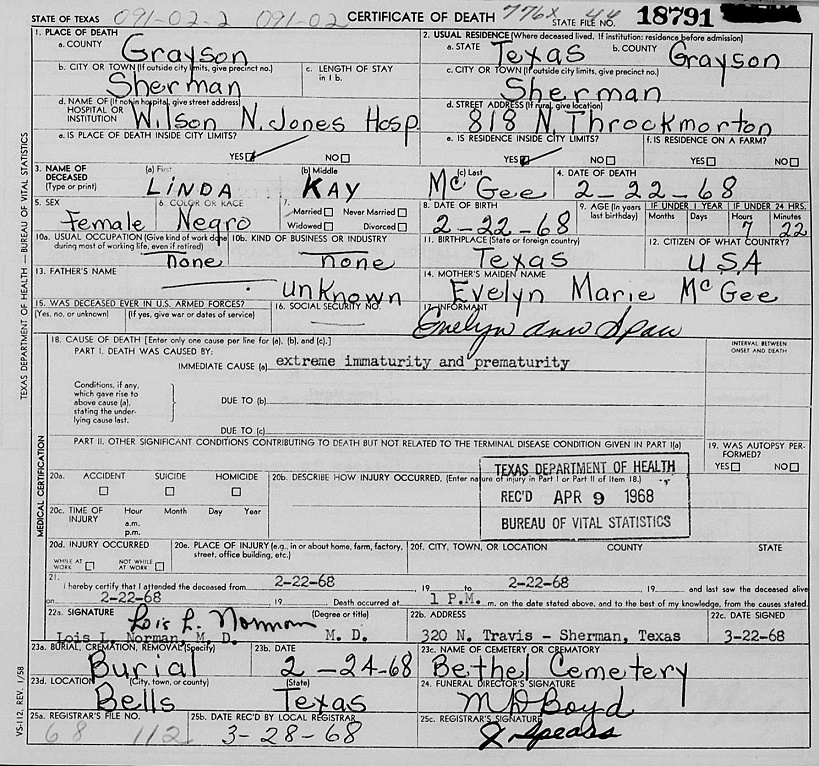 STATE OF TEXAS 091-02-2 091-02 CERTIFICATE OF DEATH 776X 44 STATE FILE NO. 18791
1. PLACE OF DEATH
a. COUNTY Grayson
2. USUAL RESIDENCE (Where deceased lived. If institution: residence before admission)
a. STATE Texas b. COUNTY Grayson
b. CITY OR TOWN (If outside city limits, give precinct no.) Sherman
c. LENGTH OF STAY in 1 b.
c. CITY OR TOWN (If outside city limits, give precinct no.) Sherman
d. NAME OF (If not in hospital, give street address) HOSPITAL OR INSTITUTION Wilson N. Jones Hosp
d. STREET ADDRESS (If rural, give location) 818 N. Throckmorton
e. IS PLACE OF DEATH INSIDE CITY LIMITS?
YES NO
e. IS RESIDENCE INSIDE CITY LIMITS?
YES NO
f. IS RESIDENCE ON A FARM?
YES NO
3. NAME OF DECEASED (Type or print)
(a) First LINDA (b) Middle KAY (c) Last McGee
4. DATE OF DEATH 2-22-68
5. SEX Female
6. COLOR OR RACE Negro
7. Married Never Married
Widowed Divorced
8. DATE OF BIRTH 2-22-68
9. AGE (In years last birthday) IF UNDER 1 YEAR Months Days IF UNDER 24 HRS. Hours 7 Minutes 22
10a. USUAL OCCUPATION (Give kind of work done during most of working life, even if retired) none
10b. KIND OF BUSINESS OR INDUSTRY none
11. BIRTHPLACE (State or foreign country) Texas
12. CITIZEN OF WHAT COUNTRY? USA
13. FATHER'S NAME unknown
14. MOTHER'S MAIDEN NAME Evelyn Marie McGee
15. WAS DECEASED EVER IN U.S. ARMED FORCES?
(Yes, no, or unknown) (If yes, give war or dates of service)
16. SOCIAL SECURITY NO.
17. INFORMANT Evelyn Ann
18. CAUSE OF DEATH [Enter only one cause per line for (a), (b), and (c).]
INTERVAL BETWEEN ONSET AND DEATH
PART I. DEATH WAS CAUSED BY:
IMMEDIATE CAUSE (a) extreme immaturity and prematurity
Conditions, if any, which gave rise to above cause (a), stating the underlying cause last.
DUE TO (b)
DUE TO (c)
PART II. OTHER SIGNIFICANT CONDITIONS CONTRIBUTING TO DEATH BUT NOT RELATED TO THE TERMINAL DISEASE CONDITION GIVEN IN PART I(a)
19. WAS AUTOPSY PERFORMED?
YES NO
20a. ACCIDENT SUICIDE HOMICIDE
20b. DESCRIBE HOW INJURY OCCURRED. (Enter nature of injury in Part I or Part II of Item 18.)
TEXAS DEPARTMENT OF HEALTH
REC'D APR 9 1968
BUREAU OF VITAL STATISTICS
20c. TIME OF INJURY Hour Month Day Year
a.m.
p.m.
20d. INJURY OCCURRED
WHILE AT WORK NOT WHILE AT WORK
20e. PLACE OF INJURY (e.g., in or about home, farm, factory, street, office building, etc.)
20f. CITY, TOWN, OR LOCATION COUNTY STATE
21. I hereby certify that I attended the deceased from 2-22-68, 19 to 2-22-68, 19 and last saw the deceased alive
on 2-22-68 19 Death occurred at 1 P.M. m. on the date stated above, and to the best of my knowledge, from the causes stated.
22a. SIGNATURE Lois L. Norman (Degree or title)
Lois L. Norman, M. D. M. D.
22b. ADDRESS 320 N. Travis - Sherman, Texas
22c. DATE SIGNED 3-22-68
23a. BURIAL, CREMATION, REMOVAL (Specify) Burial
23b. DATE 2-24-68
23c. NAME OF CEMETERY OR CREMATORY Bethel Cemetery
23d. LOCATION (City, town, or county) Bells (State) Texas
24. FUNERAL DIRECTOR'S SIGNATURE MD Boyd
25a. REGISTRAR'S FILE NO. 68 112
25b. DATE REC'D BY LOCAL REGISTRAR 3-28-68
25c. REGISTRAR'S SIGNATURE J Spears
TEXAS DEPARTMENT OF HEALTH — BUREAU OF VITAL STATISTICS
MEDICAL CERTIFICATION
VS-112, REV. 1/58